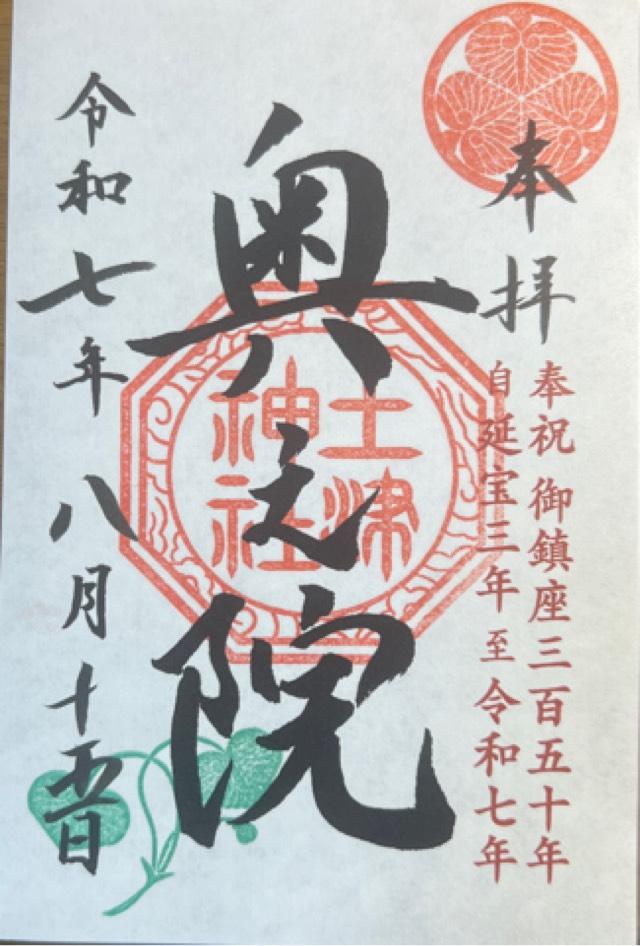 奉拝
奉祝 御鎮座三百五十年
自延宝三年 至 令和七年
奥之院
土津
神社
令和七年 八月十五日